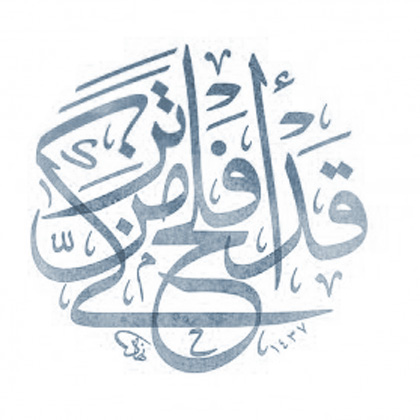 قَدْ أَفْلَحَ مَنْ تَزَكَّىٰ
١٤٣٧